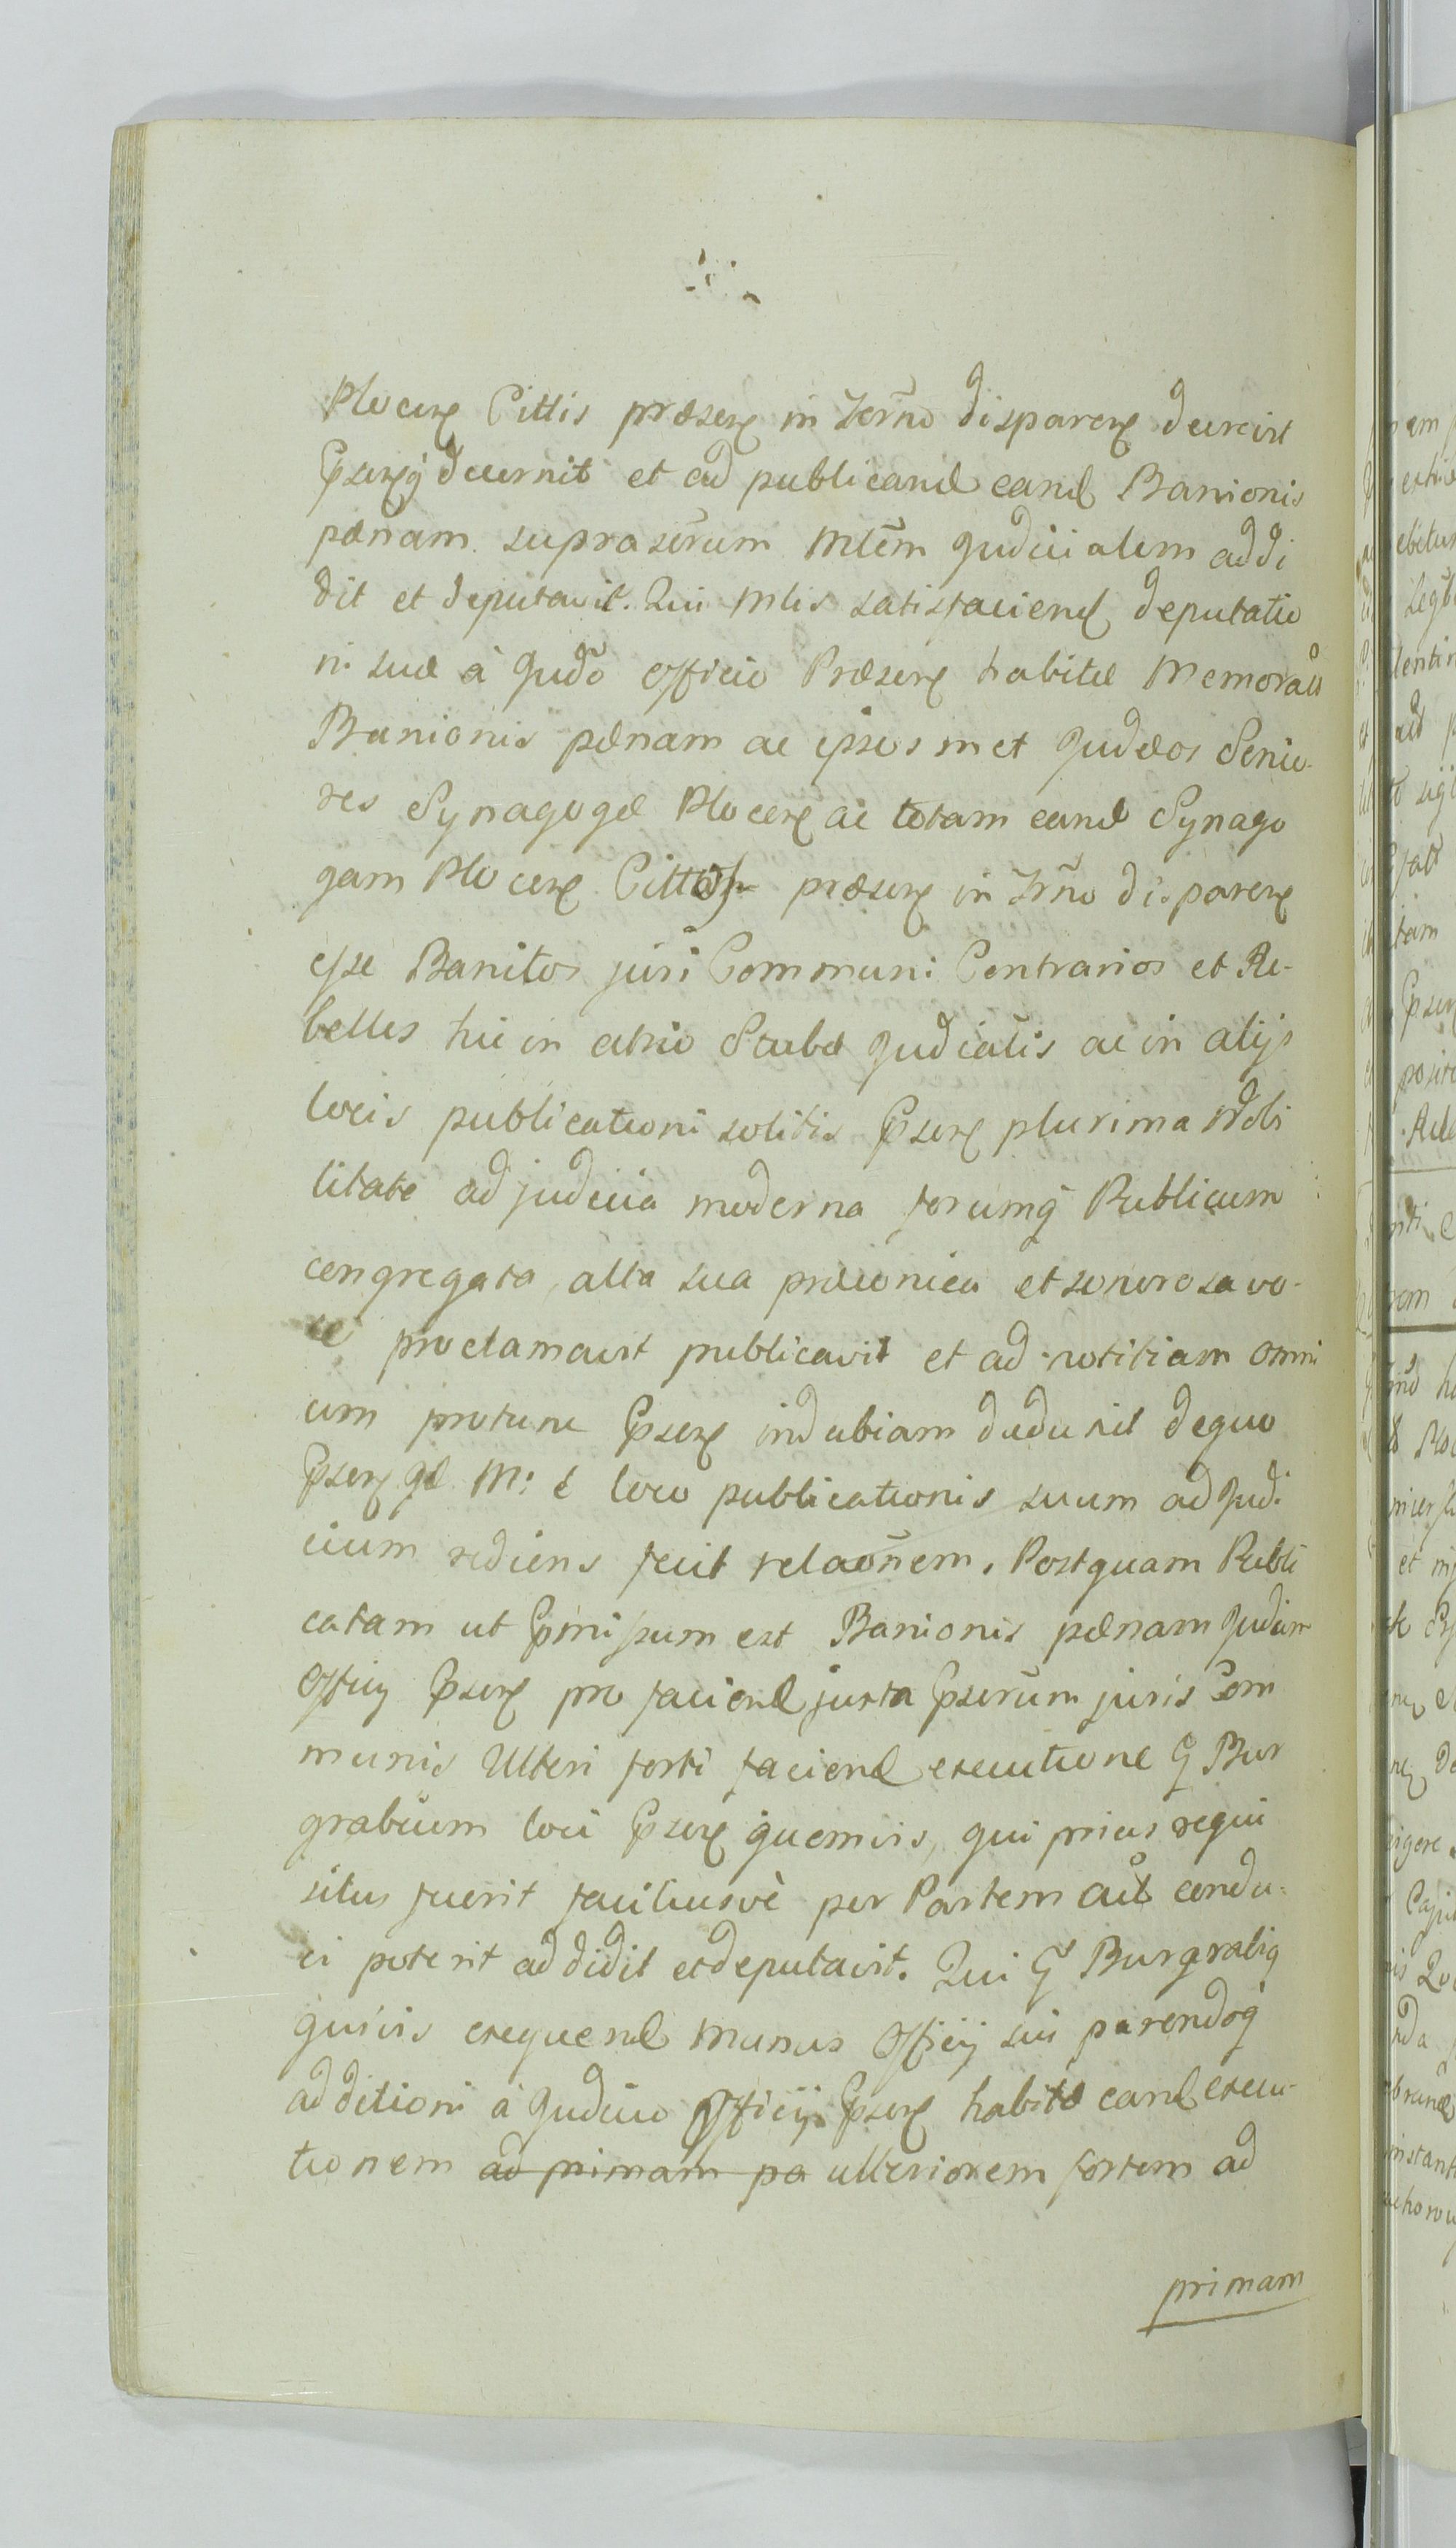 Plocen Cittis præsen in Termo disparen decrevit
Psenq decernit et ad publicand eand Banionis
pænam suprascrum Mlem Judicialem addi
dit et deputavit. Qui Mlis satisfaciend deputatio
ni suæ à Judo Officio Præsen habitæ Memorat
Banionis pænam ac ipsos met Judæos Senio-
res Synagogæ Plocen ac totam eand Synago
gam Plocen præsen in Trno disparen
esse Banitos juri Communi Contrarios et Re-
belles hic in atrio Stubæ Judicialis ac in alijs
locis publicationi solitis Psen plurima Nobi
litate ad judicia moderna forumq Publicum
congregata, alta sua præconica et sonorosa vo-
ce proclamavit publicavit et ad notitiam omni
um protunc Psen indubiam deduxit de quo
Psen Ml è loco publicationis suum ad Judi
cium rediens fecit relaonem. Postquam Publi
catam ut Pmissum est Banionis pænam Judium
Officij Psen pro faciend juxta Pscrum juris Com
munis Ulteri forti faciend executione G Bur
grabium loci Psen quemvis, qui prius requi
situs fuerit faciliusvè per Partem Act condu-
ci poterit addidit et deputavit. Qui G Burgrabig
quivis exequend munus Officij sui parendoq
additioni à Judicio Officij Psen habitæ eand execu-
tionem ad primam pa ulteriorem fortem ad
primam